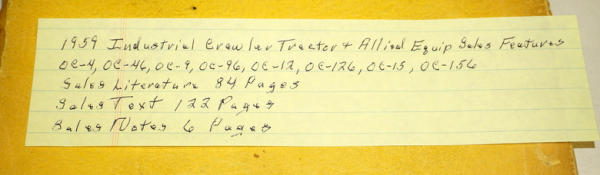 1959 Industrial Crawler Tractor + Allied Equip Sales Features
OC-4, OC-46, OC-9, OC-96, OC-12, OC-126, OC-15, OC-156
Sales Literature 84 Pages
Sales Text 122 Pages
Sales Notes 6 Pages